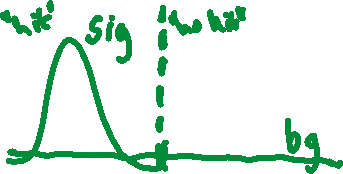 "hit"
sig
"no hit"
bg